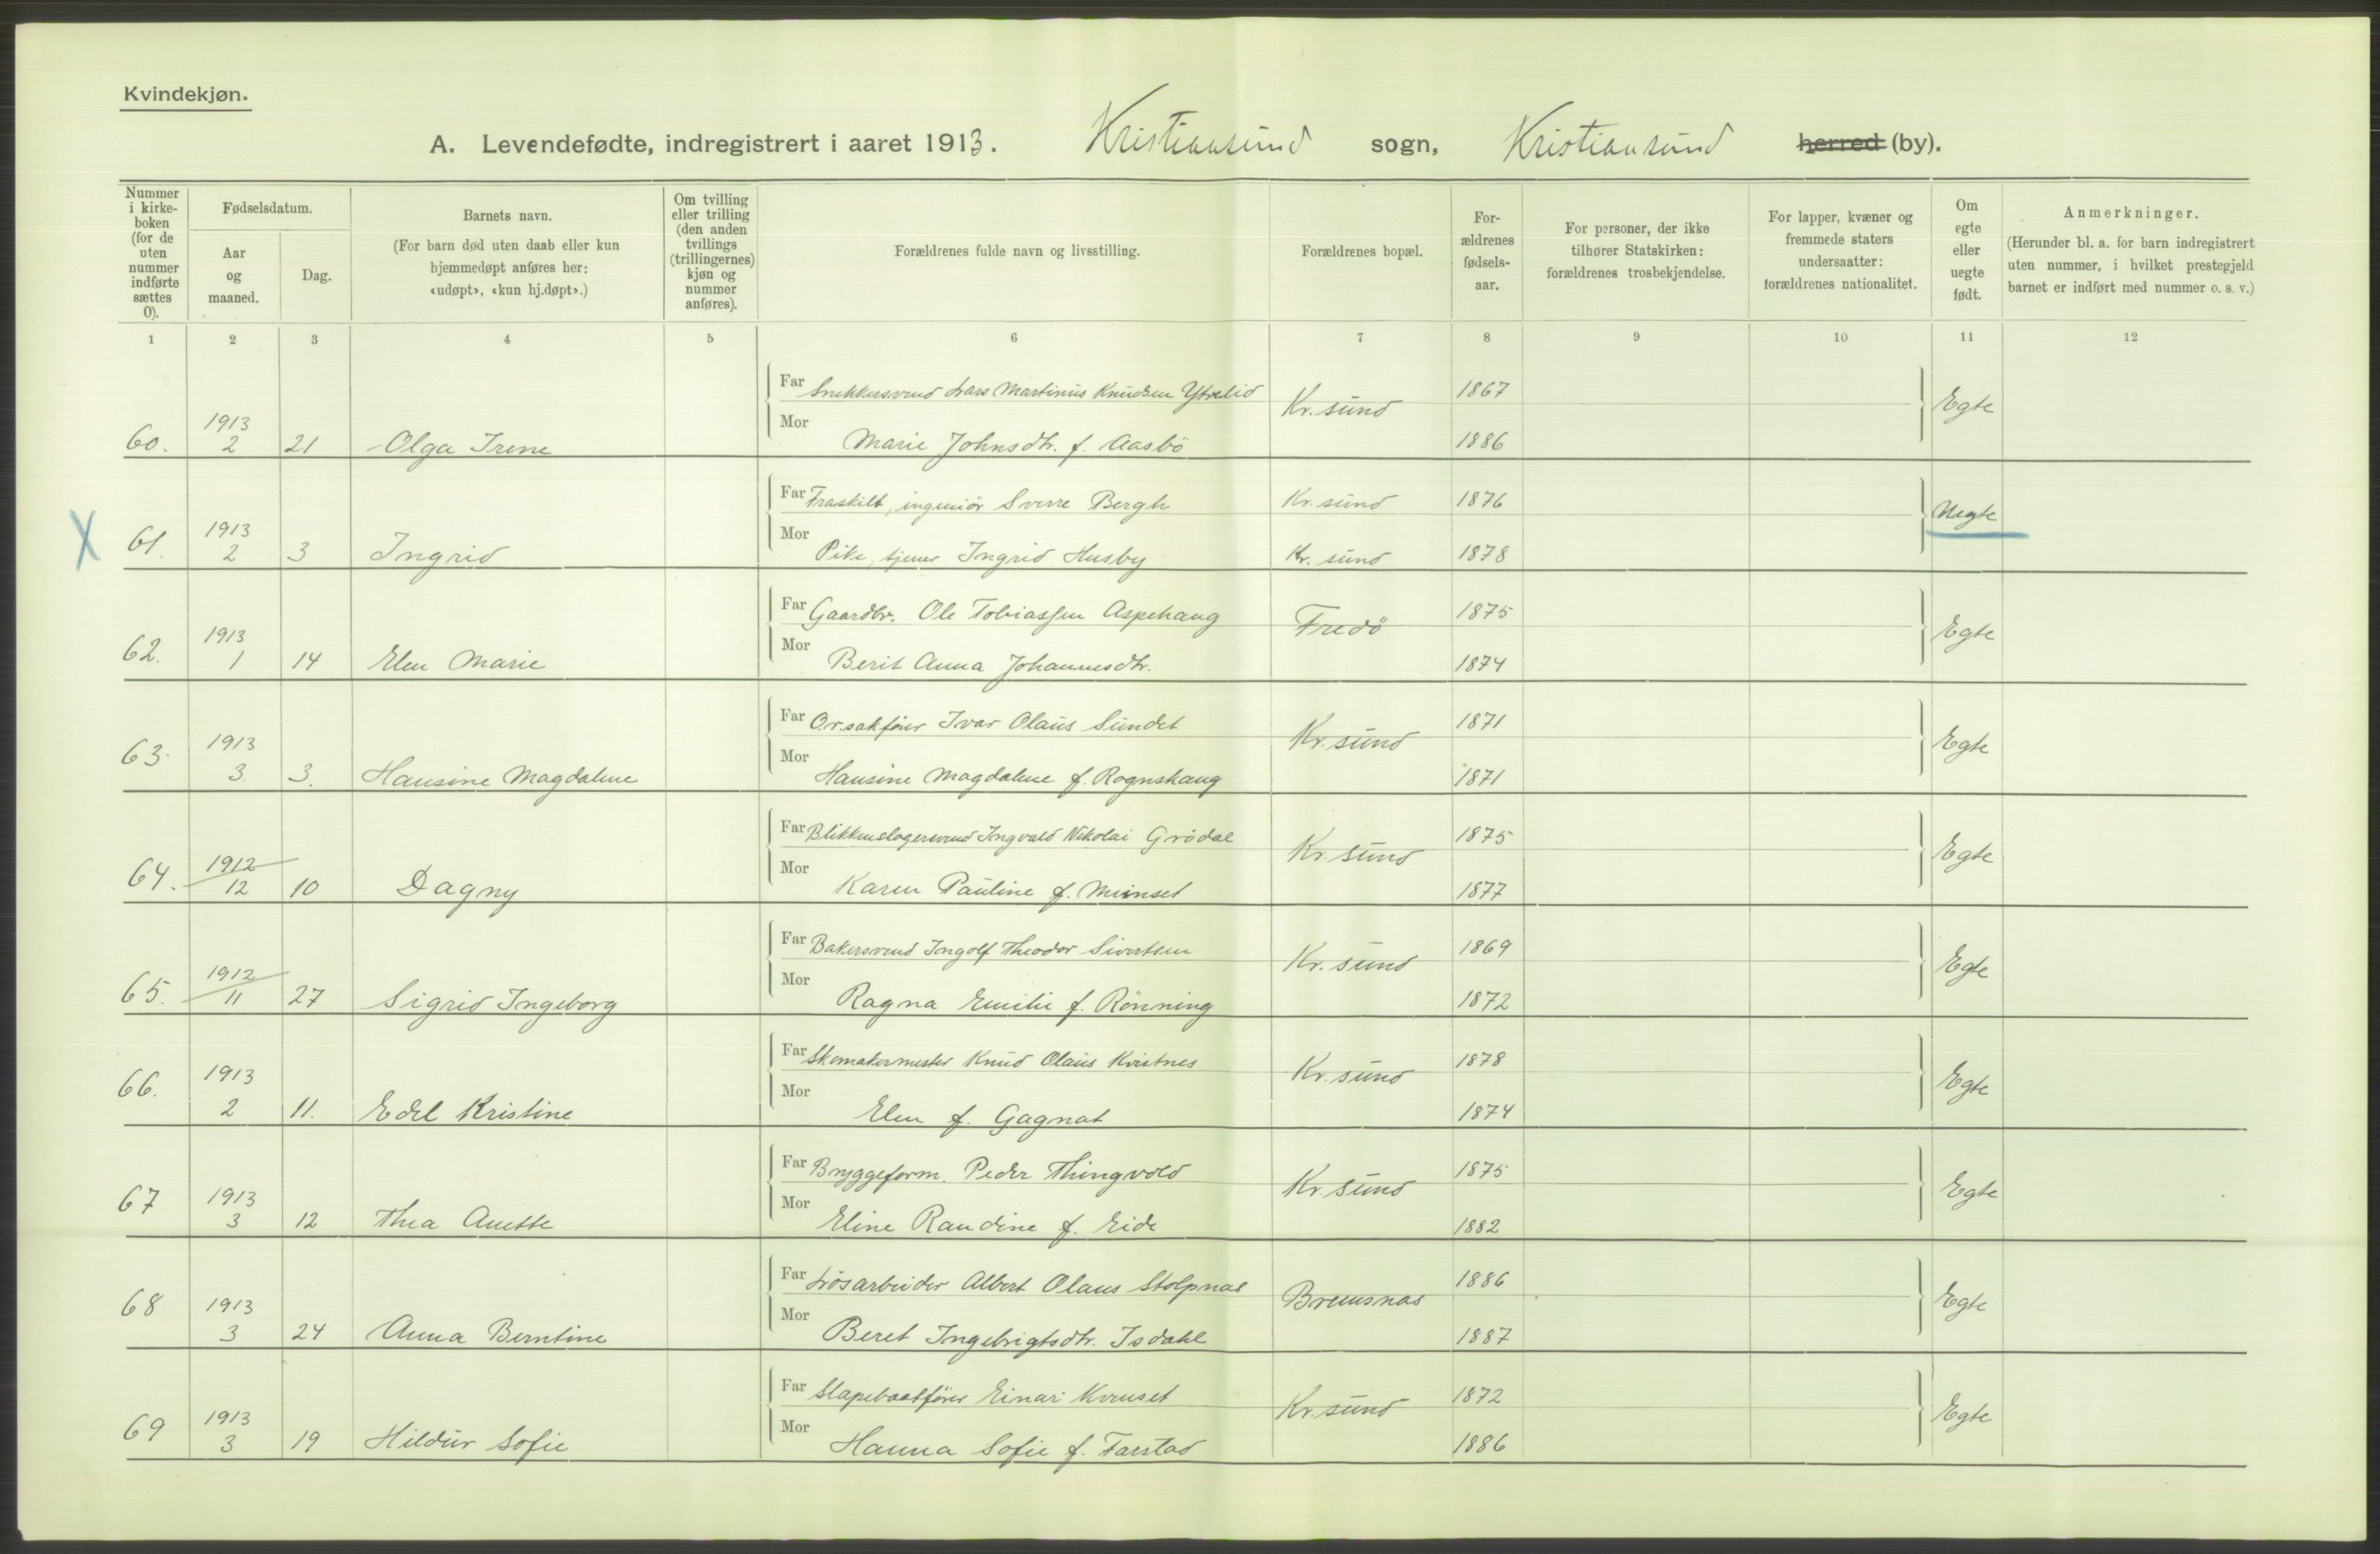 Kvindekjøn.
A. Levendefødte, indregistrert i aaret 1913. Kristiansund sogn, Kristiansund herred (by).
Nummer i kirkeboken (for de uten nummer indførte sættes 0).
Fødselsdatum.
Aar og maaned.
Dag.
Barnets navn.
(For barn død uten daab eller kun hjemmedøpt anføres her: «udøpt», «kun hj.døpt».)
Om tvilling eller trilling (den anden tvillings (trillingernes) kjøn og nummer anføres).
Forældrenes fulde navn og livsstilling.
Forældrenes bopæl.
Forældrenes fødselsaar.
For personer, der ikke tilhører Statskirken: forældrenes trosbekjendelse.
For lapper, kvæner og fremmede staters undersaatter: forældrenes nationalitet.
Om egte eller uegte født.
Anmerkninger.
(Herunder bl. a. for barn indregistrert uten nummer, i hvilket prestegjeld barnet er indført med nummer o. s. v.)
1 2 3 4 5 6 7 8 9 10 11 12
Far Snekkersvend Lars Martinus Knudsen Ytrelid Kr.sund 1867 Egte
60. 1913 2 21 Olga Irene Mor Marie Johnsdtr. f. Aasbö 1886
Far Fraskilt, ingeniör Sverre Bergh Kr.sund 1876 Uegte
X 61. 1913 2 3 Ingrid Mor Pike, tjener Ingrid Husby Kr.sund 1878
Far Gaardbr. Ole Tobiassen Aspehaug Fredö 1875 Egte
62. 1913 1 14 Elen Marie Mor Berit Anna Johannesdtr. 1874
Far O.r.sakförer Ivar Olaus Sundet Kr.sund 1871 Egte
63. 1913 3. 3. Hansine Magdalene Mor Hansine Magdalene f. Rognskaug 1871
Far Blikkenslagersvend Ingvald Nikolai Grödal Kr.sund 1875 Egte
64. 1912 12 10 Dagny Mor Karen Pauline f. 1877
Far Bakersvend Ingolf Theodor Sivertsen Kr.sund 1869 Egte
65. 1912 11 27 Sigrid Ingeborg Mor Ragna Emilie f. Rönning 1872
Far Skomakermester Knud Olaus Kvistnes Kr.sund 1878 Egte
66. 1913 2 11. Edel Kristine Mor Elen f. Gagnat 1874
Far Bryggeform. Peder Thingvold Kr.sund 1875 Egte
67 1913 3 12 Thea Anette Mor Eline Randine f. Eide 1882
Far Lösarbeider Albert Olaus Stolpnæs Bremsnæs 1886 Egte
68 1913 3 24 Anna Berntine Mor Beret Ingebrigtsdtr. Isdahl 1887
Far Slæpebaatförer Einar Kvenset Kr.sund 1872 Egte
69 1913 3 19 Hildur Sofie Mor Hanna Sofie f. Farstad 1886